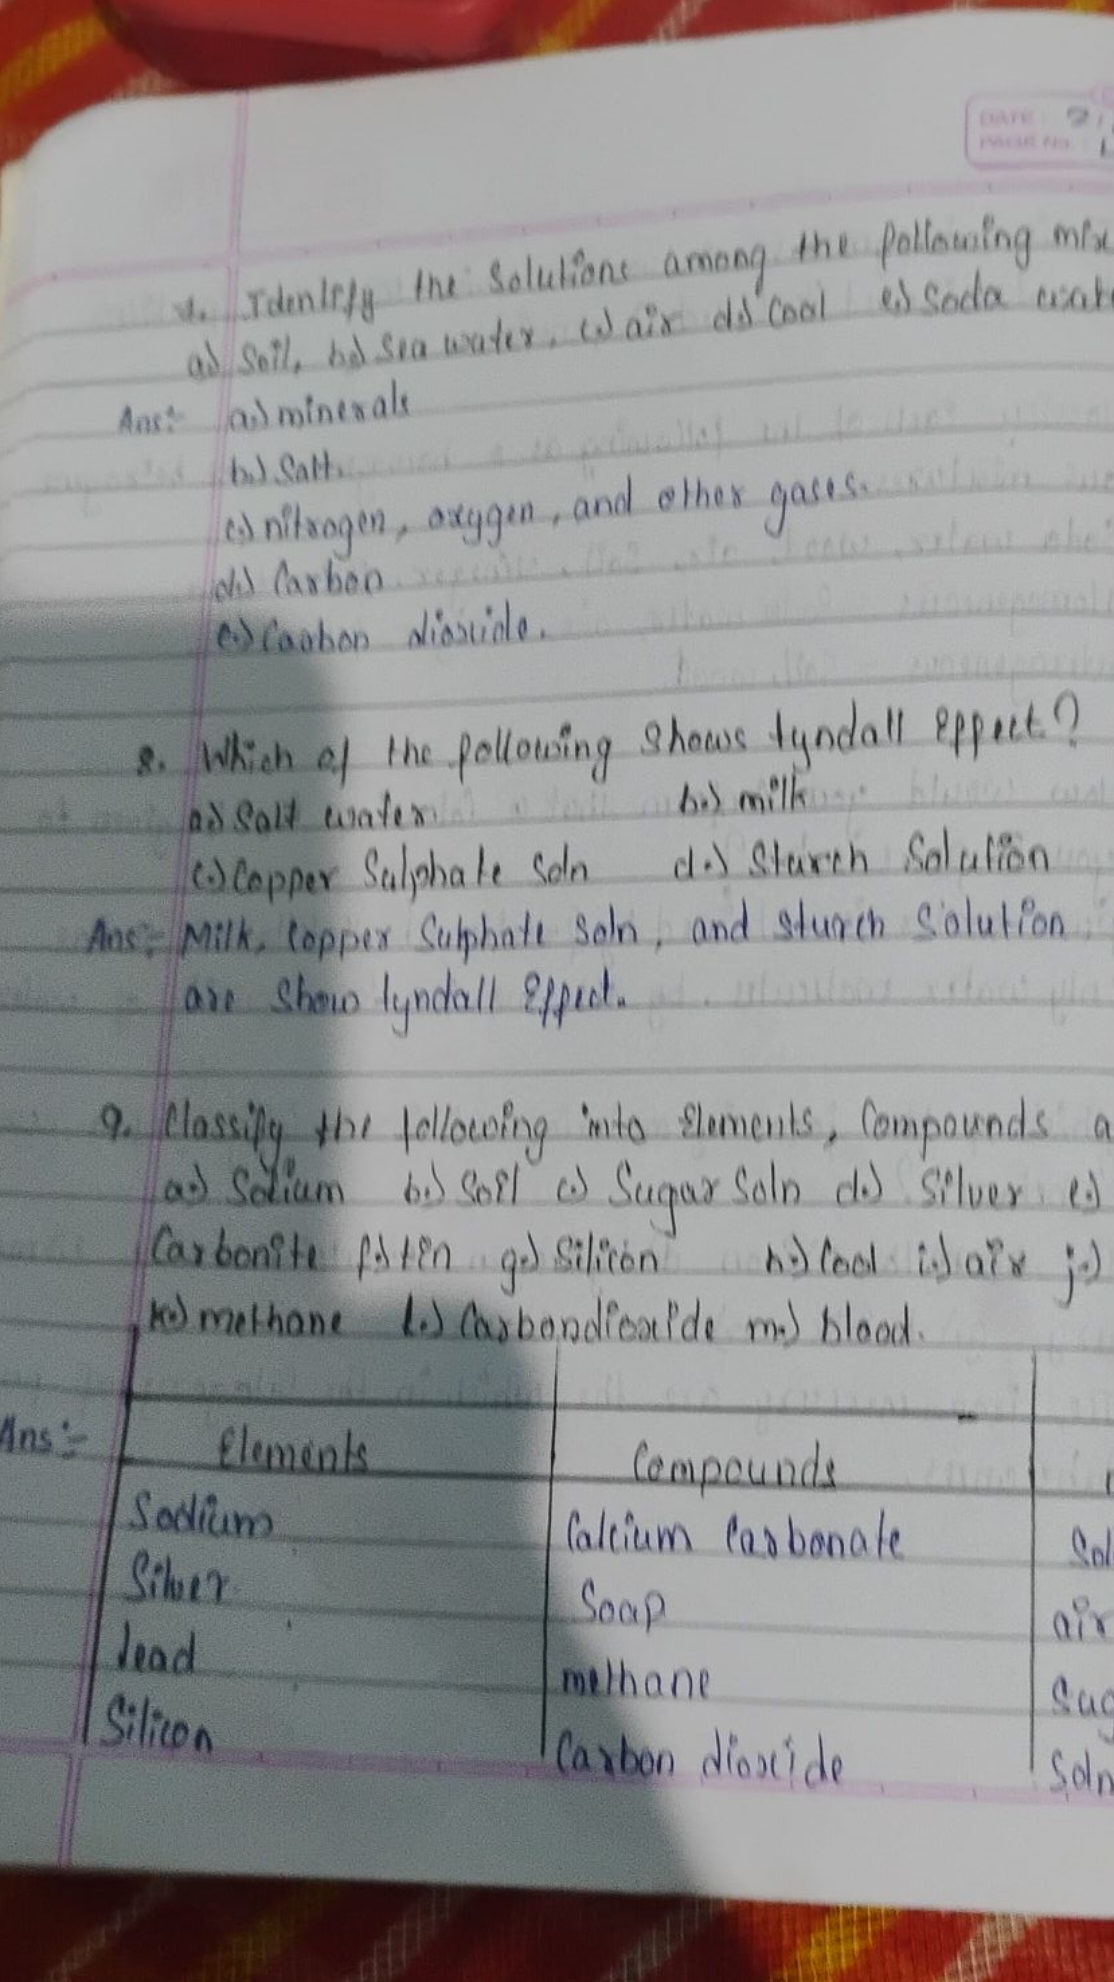 DATE
PAGE No.
7. Identify the Solutions among the following mix
a) Soil, b.) Sea water, c.) air d.) Cool e.) Soda wat
Ans:- a.) minerals
b.) Salt.
c.) nitrogen, oxygen, and other gases.
d.) Carbon
e.) Carbon dioxide.
8. Which of the following shows tyndall effect?
a.) Salt water b.) milk
c.) Copper Sulphate Soln d.) Starch Solution
Ans:- Milk, Copper Sulphate Soln, and starch Solution
are show tyndall Effect.
9. Classify the following into Elements, Compounds a
a.) Sodium b.) Soil c.) Sugar Soln d.) Silver e.)
Carbonite f.) tin g.) Silicon h.) Cool i.) air j.)
k.) methane l.) Carbondioxide m.) blood.
Ans:- Elements Compounds
Sodium Calcium Carbonate Sol
Silver Soap air
lead methane Sug
Silicon Carbon dioxide Soln